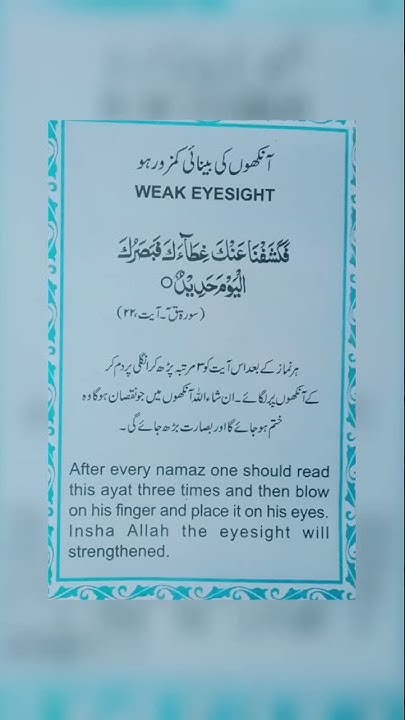 آنکھوں کی بینائی کمزور ہو
WEAK EYESIGHT
فَكَشَفْنَا عَنْكَ غِطَآءَكَ فَبَصَرُكَ
الْيَوْمَ حَدِيْدٌ ○
(سورۃ قٓ۔ آیت، ۲۲)
ہر نماز کے بعد اس آیت کو ۳ مرتبہ پڑھ کر انگلی پر دم کر
کے آنکھوں پر لگائے۔ ان شاء اللہ آنکھوں میں جو نقصان ہوگا وہ
ختم ہو جائے گا اور بصارت بڑھ جائے گی۔
After every namaz one should read
this ayat three times and then blow
on his finger and place it on his eyes.
Insha Allah the eyesight will
strengthened.